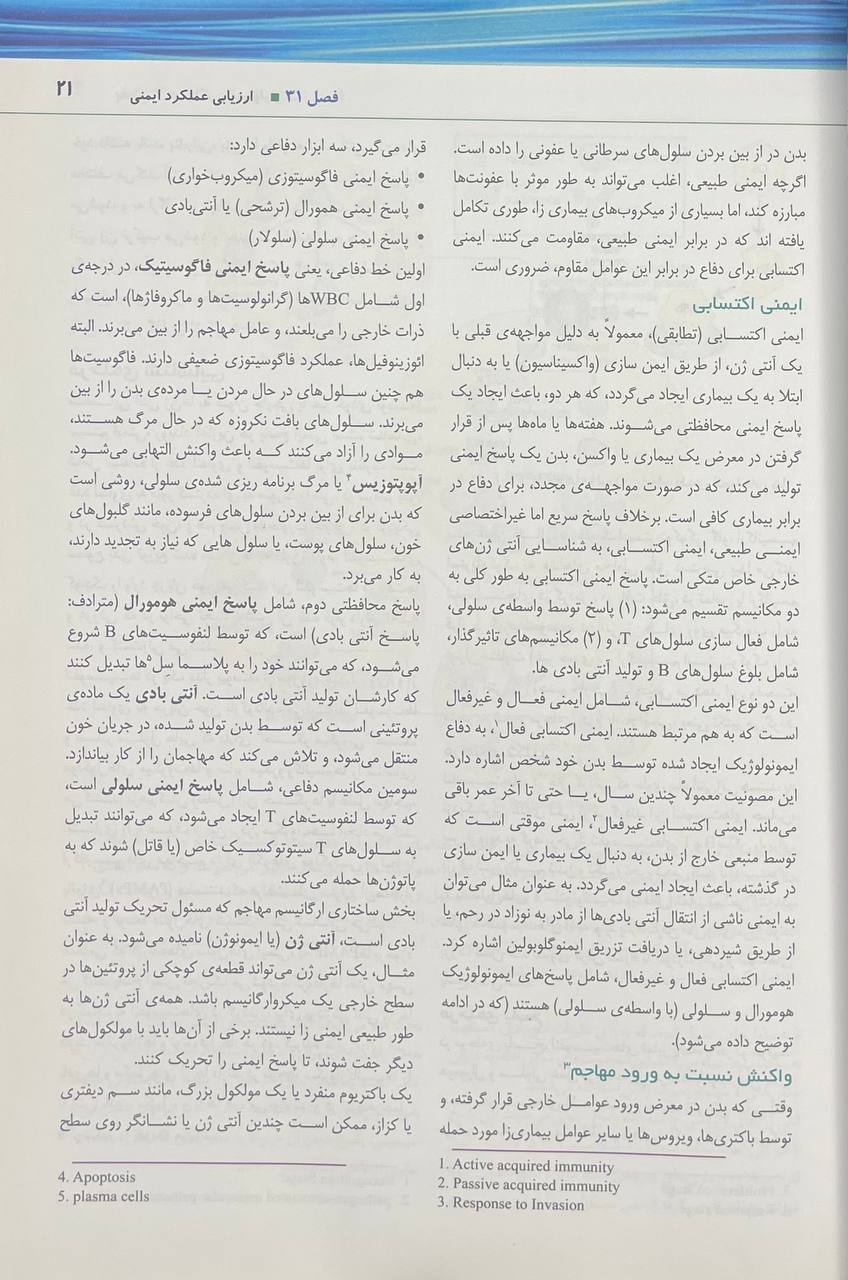 فصل ۳۱ ■ ارزیابی عملکرد ایمنی
۲۱
بدن در از بین بردن سلول‌های سرطانی یا عفونی را داده است.
اگرچه ایمنی طبیعی، اغلب می‌تواند به طور موثر با عفونت‌ها
مبارزه کند، اما بسیاری از میکروب‌های بیماری زا، طوری تکامل
یافته اند که در برابر ایمنی طبیعی، مقاومت می‌کنند. ایمنی
اکتسابی برای دفاع در برابر این عوامل مقاوم، ضروری است.
ایمنی اکتسابی
ایمنی اکتسابی (تطابقی)، معمولاً به دلیل مواجهه‌ی قبلی با
یک آنتی ژن، از طریق ایمن سازی (واکسیناسیون) یا به دنبال
ابتلا به یک بیماری ایجاد می‌گردد، که هر دو، باعث ایجاد یک
پاسخ ایمنی محافظتی می‌شوند. هفته‌ها یا ماه‌ها پس از قرار
گرفتن در معرض یک بیماری یا واکسن، بدن یک پاسخ ایمنی
تولید می‌کند، که در صورت مواجهه‌ی مجدد، برای دفاع در
برابر بیماری کافی است. برخلاف پاسخ سریع اما غیراختصاصی
ایمنی طبیعی، ایمنی اکتسابی، به شناسایی آنتی ژن‌های
خارجی خاص متکی است. پاسخ ایمنی اکتسابی به طور کلی به
دو مکانیسم تقسیم می‌شود: (۱) پاسخ توسط واسطه‌ی سلولی،
شامل فعال سازی سلول‌های T، و (۲) مکانیسم‌های تاثیرگذار،
شامل بلوغ سلول‌های B و تولید آنتی بادی ها.
این دو نوع ایمنی اکتسابی، شامل ایمنی فعال و غیرفعال
است که به هم مرتبط هستند. ایمنی اکتسابی فعال۱، به دفاع
ایمونولوژیک ایجاد شده توسط بدن خود شخص اشاره دارد.
این مصونیت معمولاً چندین سال، یا حتی تا آخر عمر باقی
می‌ماند. ایمنی اکتسابی غیرفعال۲، ایمنی موقتی است که
توسط منبعی خارج از بدن، به دنبال یک بیماری یا ایمن سازی
در گذشته، باعث ایجاد ایمنی می‌گردد. به عنوان مثال می‌توان
به ایمنی ناشی از انتقال آنتی بادی‌ها از مادر به نوزاد در رحم، یا
از طریق شیردهی، یا دریافت تزریق ایمنوگلوبولین اشاره کرد.
ایمنی اکتسابی فعال و غیرفعال، شامل پاسخ‌های ایمونولوژیک
هومورال و سلولی (با واسطه‌ی سلولی) هستند (که در ادامه
توضیح داده می‌شود).
واکنش نسبت به ورود مهاجم۳
وقتی که بدن در معرض ورود عوامل خارجی قرار گرفته، و
توسط باکتری‌ها، ویروس‌ها یا سایر عوامل بیماری‌زا مورد حمله
1. Active acquired immunity
2. Passive acquired immunity
3. Response to Invasion
قرار می‌گیرد، سه ابزار دفاعی دارد:
• پاسخ ایمنی فاگوسیتوزی (میکروب‌خواری)
• پاسخ ایمنی همورال (ترشحی) یا آنتی‌بادی
• پاسخ ایمنی سلولی (سلولار)
اولین خط دفاعی، یعنی پاسخ ایمنی فاگوسیتیک، در درجه‌ی
اول شامل WBCها (گرانولوسیت‌ها و ماکروفاژها)، است که
ذرات خارجی را می‌بلعند، و عامل مهاجم را از بین می‌برند. البته
ائوزینوفیل‌ها، عملکرد فاگوسیتوزی ضعیفی دارند. فاگوسیت‌ها
هم چنین سلول‌های در حال مردن یا مرده‌ی بدن را از بین
می‌برند. سلول‌های بافت نکروزه که در حال مرگ هستند،
موادی را آزاد می‌کنند که باعث واکنش التهابی می‌شود.
آپوپتوزیس۴ یا مرگ برنامه ریزی شده‌ی سلولی، روشی است
که بدن برای از بین بردن سلول‌های فرسوده، مانند گلبول‌های
خون، سلول‌های پوست، یا سلول هایی که نیاز به تجدید دارند،
به کار می‌برد.
پاسخ محافظتی دوم، شامل پاسخ ایمنی هومورال (مترادف:
پاسخ آنتی بادی) است، که توسط لنفوسیت‌های B شروع
می‌شود، که می‌توانند خود را به پلاسما سِل۵ها تبدیل کنند
که کارشان تولید آنتی بادی است. آنتی بادی یک ماده‌ی
پروتئینی است که توسط بدن تولید شده، در جریان خون
منتقل می‌شود، و تلاش می‌کند که مهاجمان را از کار بیاندازد.
سومین مکانیسم دفاعی، شامل پاسخ ایمنی سلولی است،
که توسط لنفوسیت‌های T ایجاد می‌شود، که می‌توانند تبدیل
به سلول‌های T سیتوتوکسیک خاص (یا قاتل) شوند که به
پاتوژن‌ها حمله می‌کنند.
بخش ساختاری ارگانیسم مهاجم که مسئول تحریک تولید آنتی
بادی است، آنتی ژن (یا ایمونوژن) نامیده می‌شود. به عنوان
مثال، یک آنتی ژن می‌تواند قطعه‌ی کوچکی از پروتئین‌ها در
سطح خارجی یک میکروارگانیسم باشد. همه‌ی آنتی ژن‌ها به
طور طبیعی ایمنی زا نیستند. برخی از آن‌ها باید با مولکول‌های
دیگر جفت شوند، تا پاسخ ایمنی را تحریک کنند.
یک باکتریوم منفرد یا یک مولکول بزرگ، مانند سم دیفتری
یا کزاز، ممکن است چندین آنتی ژن یا نشانگر روی سطح
4. Apoptosis
5. plasma cells